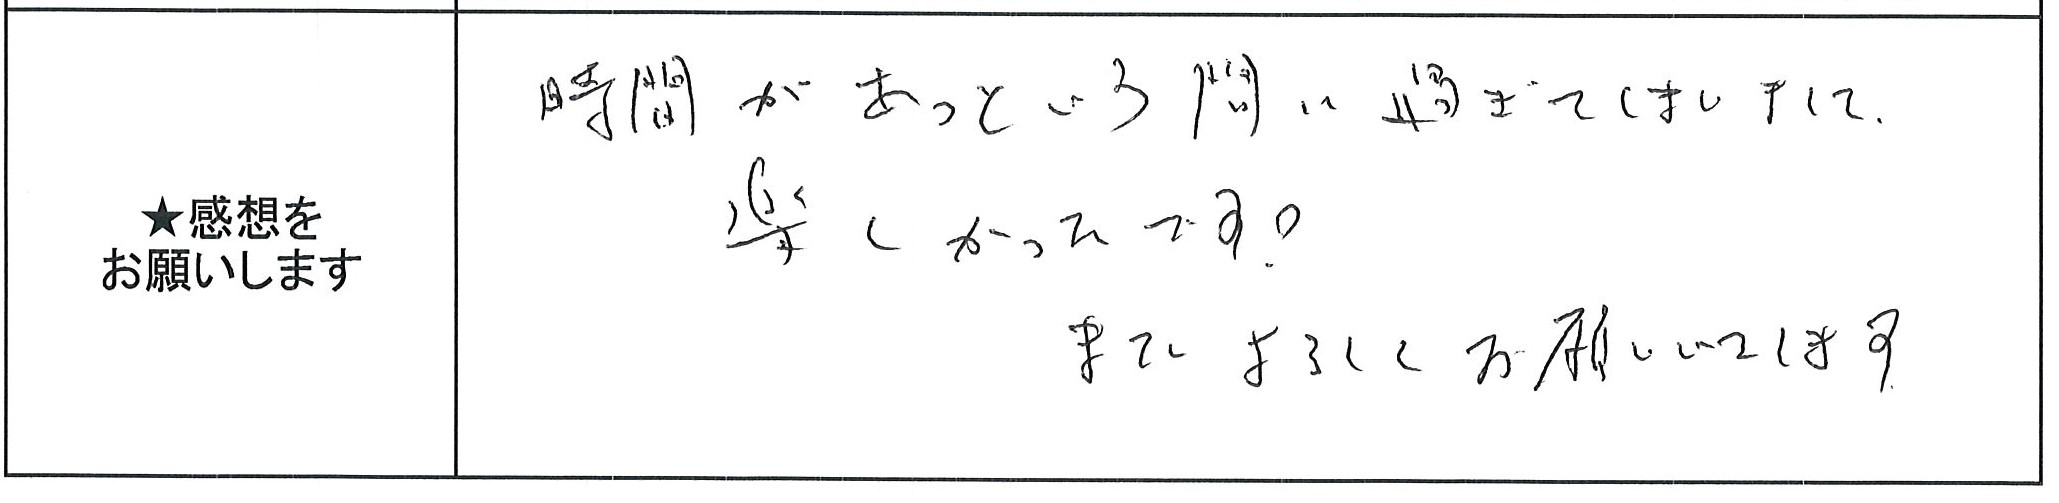 ★感想を
お願いします
時間があっという間に過ぎてしまいまして、
楽しかったです。
またよろしくお願いいたします